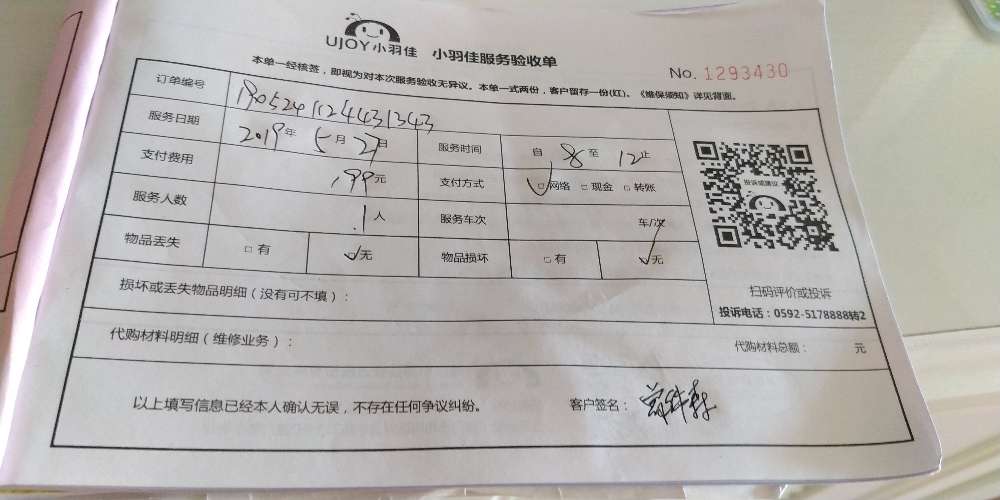 UJOY小羽佳 小羽佳服务验收单
本单一经核签，即视为对本次服务验收无异议。本单一式两份，客户留存一份(红)。《维保须知》详见背面。
No. 1293430
订单编号 190524112443 1343
服务日期 2019年 5月 27日 服务时间 自 8 至 12止
支付费用 199元 支付方式 ☑网络 □现金 □转账
服务人数 1人 服务车次 车/次
物品丢失 □有 ☑无 物品损坏 □有 ☑无
投诉或建议
扫码评价或投诉
投诉电话：0592-5178888转2
损坏或丢失物品明细（没有可不填）：
代购材料明细（维修业务）： 代购材料总额： 元
以上填写信息已经本人确认无误，不存在任何争议纠纷。 客户签名：